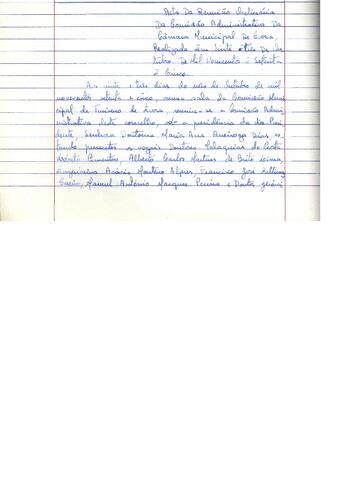 Acta Da Reunião Ordinária
Da Comissão Administrativa Da
Câmara Municipal De Évora,
Realizada Em Vinte e Três De Ou-
tubro De Mil Novecentos e Setenta
e Cinco.
Aos vinte e três dias do mês de Outubro de mil
novecentos setenta e cinco, numa sala da Comissão Muni-
cipal de Turismo de Évora, reuniu-se a Comissão Admi-
nistrativa deste concelho, sob a presidência da
senhora Doutora Maria Ana Dias, es-
tando presentes os vogais Doutores da Costa
Pimentão, Alberto Carlos Martins de Brito Lima,
Engenheiro Acácio Monteiro Alferes, Francisco José
Garcia, Manuel António Marques Pereira e Doutor